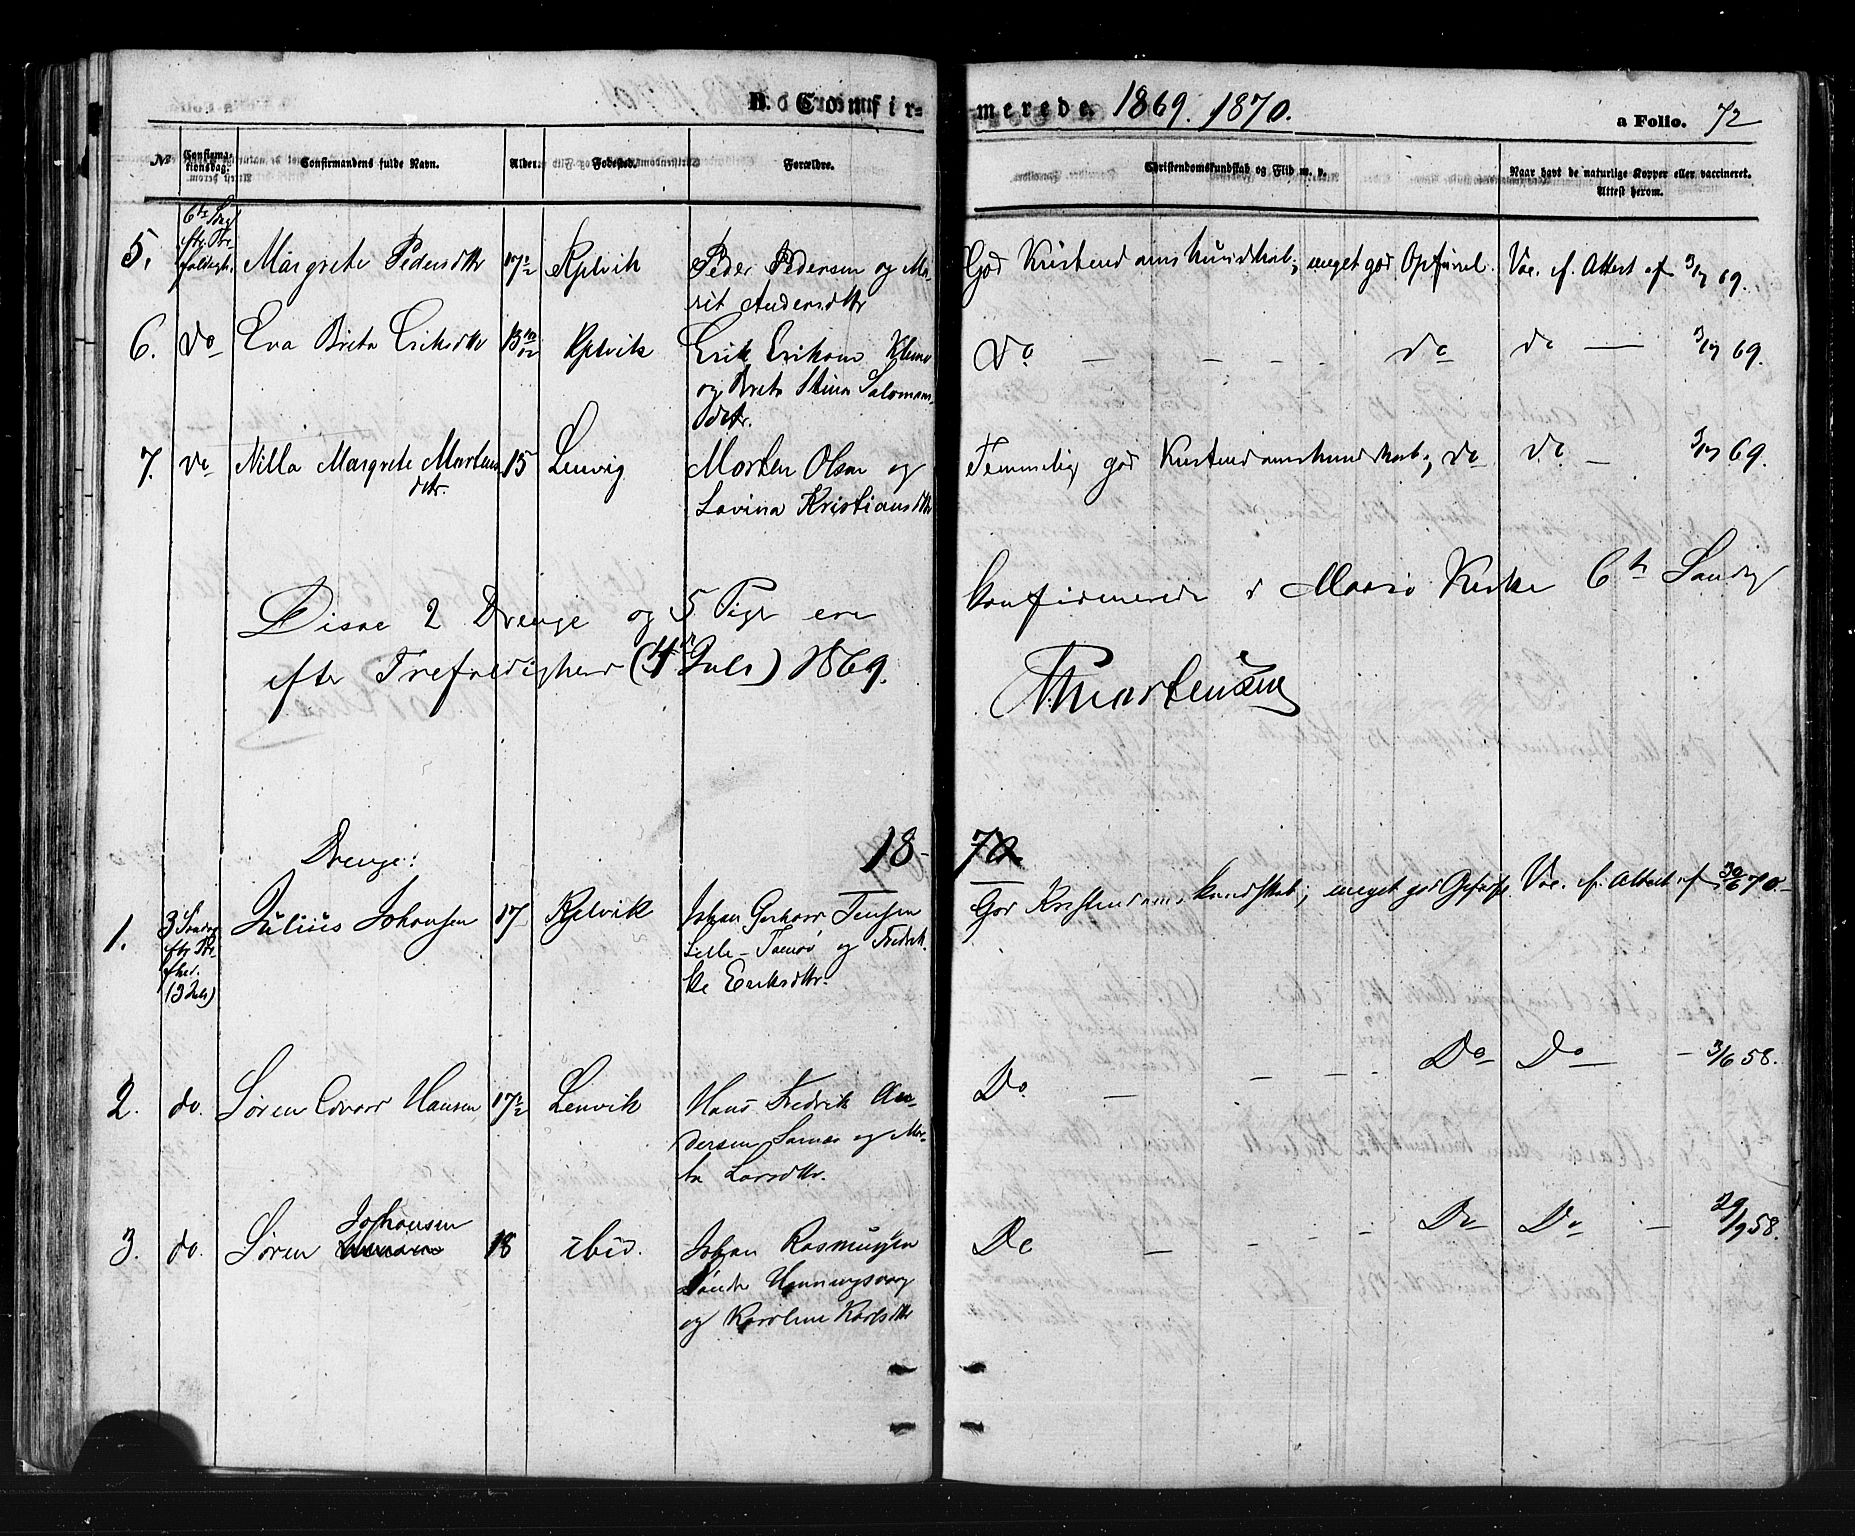 B. Confir-
merede. 1869. 1870.
a Folio. 72
№
Confirma-
tionsdag.
Confirmandens fulde Navn.
Alder.
Fødested.
Forældre.
Christendomskundskab og Flid m. v.
Naar havt de naturlige Kopper eller vaccineret.
Attest herom.
6te Søndag
eftr. Tre-
foldigh.
5. Margrete Pedersdtr 17 1/2 Kjelvik Peder Pedersen og Ma-
rit Andersdtr
God Kristendomskundskab; meget god Opførsel. Vac. ef. Attest af 3/7 69.
6. do Eva Breta Eriksdtr 13 10/12 Kjelvik Erik Erikson
og Breta Stina Salomons-
datr.
Do — — — — do do — 3/7 69.
7. do Nilla Margrete Mortens 15 Lenvig Morten Olsen og
dtr.
Lovina Kristiansdtr
Temmelig god Kristendomskundskab; do do. — 3/7 69.
Disse 2 Drenge og 5 Piger ere konfirmerede i Maasø Kirke 6te Søndag
efter Trefoldighed (4de Juli) 1869.
Mortensen
18-70
Drenge:
1. 3 Søndag
eftr Tre-
fhed.
(3 Juli)
Julius Johansen 17 Kjelvik Johan Gerhard Jensen
Lille-Tamsø og Fredrik-
ke Eriksdtr.
God Kristendomskundskab; meget god Opførsel. Vac. ef. Attest af 30/6 70.
2. do. Søren Edvard Hansen 17 1/2 Lenvik Hans Fredrik An-
dersen Sarnes og Mar-
ta Larsdtr.
Do — — — — Do Do — — 3/6 58.
3. do. Søren Johansen 18 ibid. Johan Rasmussen
Søndre Honningsvaag
og Karoline Karlsdtr
Do — — — — Do Do — 29/9 58.